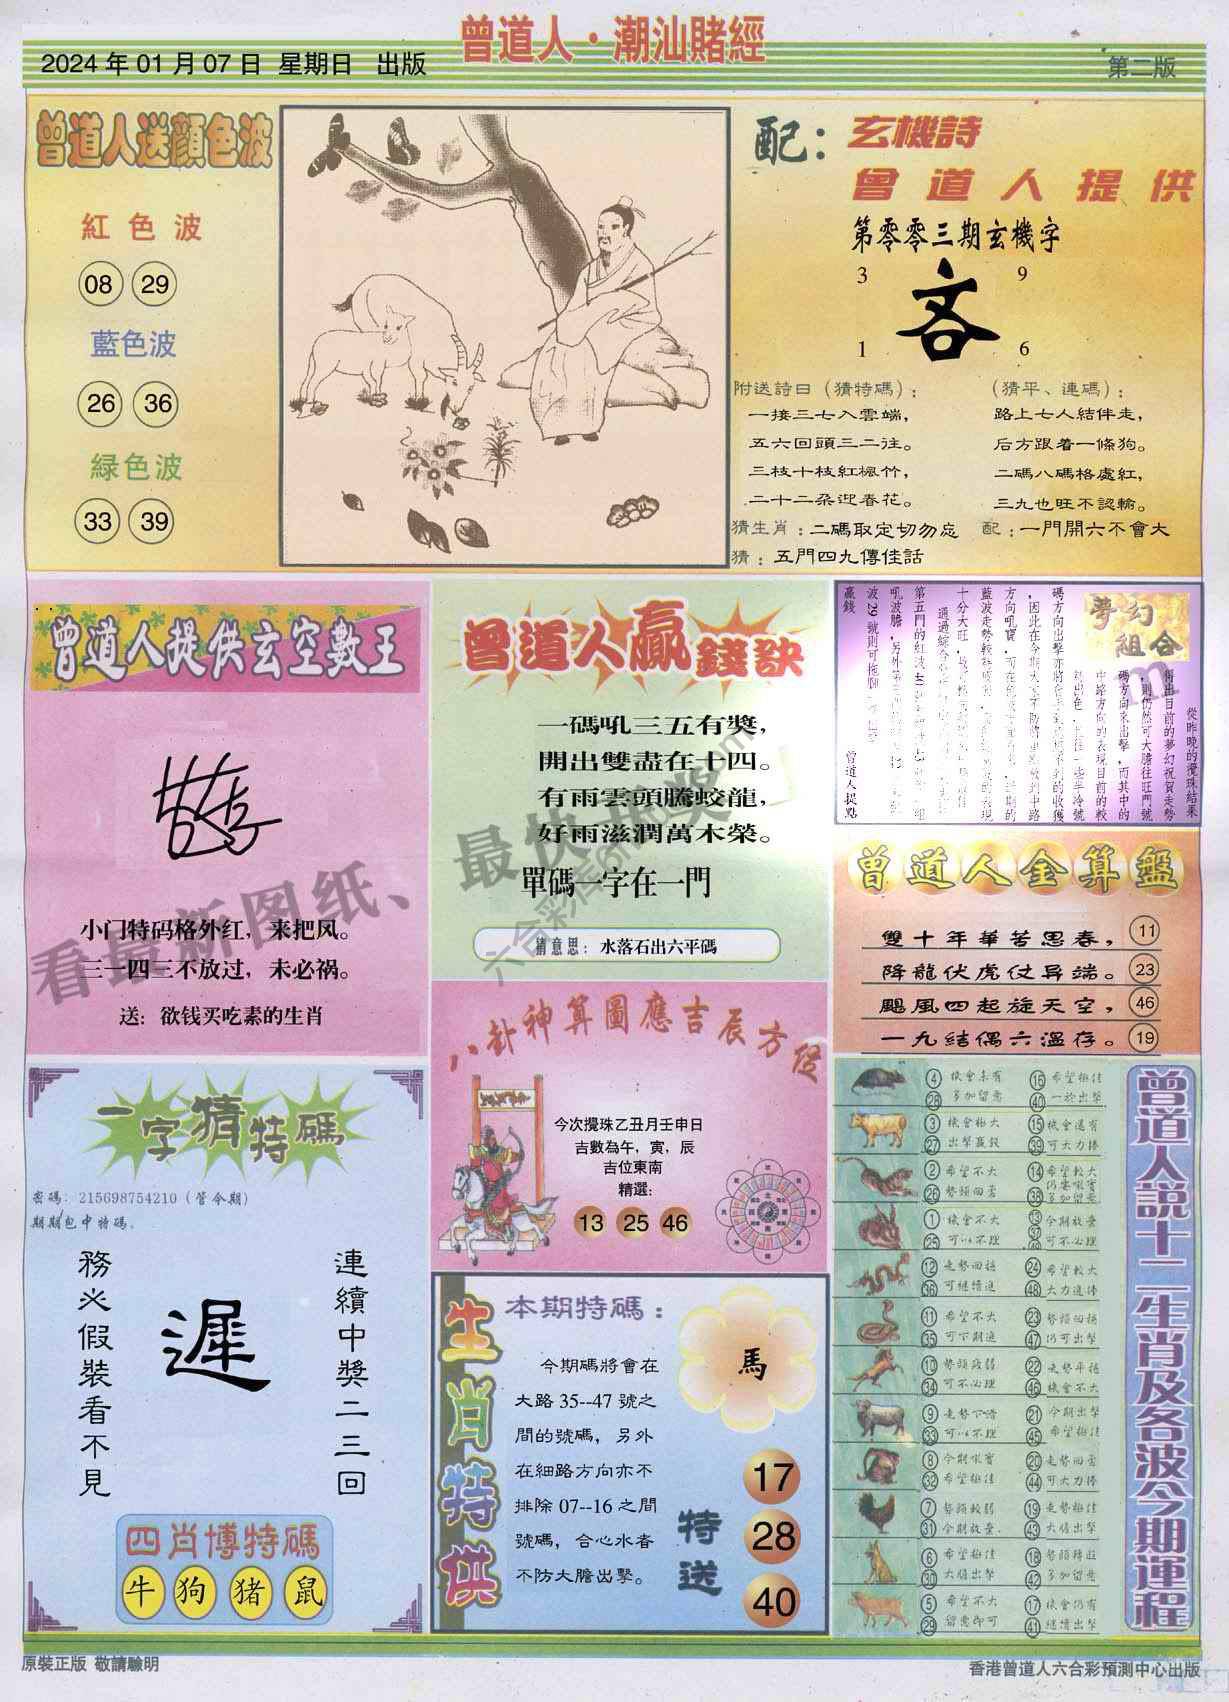 曾道人·潮汕賭經
2024 年 01 月 07 日 星期日 出版
第二版
曾道人送顏色波
紅色波
08 29
藍色波
26 36
緑色波
33 39
配：
玄機詩
曾道人提供
第零零三期玄機字
3 9
吝
1 6
附送詩曰（猜特碼）：
一接三七入雲端，
五六回頭三二往。
三枝十枝紅楓竹，
二十二朶迎春花。
（猜平、連碼）：
路上七人結伴走，
后方跟着一條狗。
二碼八碼格處紅，
三九也旺不認輸。
猜生肖：二碼取定切勿忘
配：一門開六不會大
猜：五門四九傳佳話
曾道人提供玄空數王
小门特码格外红，来把凤。
三一四三不放过，未必祸。
送：欲钱买吃素的生肖
曾道人贏錢訣
一碼吼三五有獎，
開出雙盡在十四。
有雨雲頭騰蛟龍，
好雨滋潤萬木榮。
單碼一字在一門
猜意思：水落石出六平碼
夢幻組合
從昨晚的攪珠結果
得出目前的夢幻祝賀走勢
，則仍然可大膽往旺門號
碼方向來出擊，而其中的
中路方向的表現目前的較
曾道人提點
贏錢
曾道人金算盤
雙十年華苦思春， 11
降龍伏虎仗异端。 23
颶風四起旋天空， 46
一九結偶六溫存。 19
八卦神算圖應吉辰方位
今次攪珠乙丑月壬申日
吉數為午，寅，辰
吉位東南
精選：
13 25 46
一字猜特碼
密碼：215698754210（管令期）
期期包中特碼。
連續中獎二三回
遲
務必假裝看不見
四肖博特碼
牛 狗 猪 鼠
生肖特供
本期特碼：
今期碼將會在
大路 35--47 號之
間的號碼，另外
在細路方向亦不
排除 07--16 之間
號碼，合心水者
不防大膽出擊。
馬
特送
17
28
40
曾道人説十二生肖及各波今期運程
4 機會未有 16 希望極佳
28 多加留意 40 一於出擊
3 機會極大 15 機會還有
27 出擊贏錢 39 可大力捧
2 希望不大 14 希望較大
26 勢頭回落 38 多加留意
1 機會不大 13 今期放棄
25 可以不理 37 49 可不必理
12 走勢回穩 24 希望較大
36 可繼續進 48 大力進捧
11 希望不大 23 勢頭回穩
35 可下期進 47 仍可出擊
10 勢頭疲弱 22 走勢平穩
34 可不必理 46 機會不大
9 走勢下滑 21 今期出擊
33 可以不理 45 希望極佳
8 今期眾賓 20 走勢回落
32 希望極佳 44 可大力捧
7 勢頭較弱 19 走勢極佳
31 今期放棄 43 大膽出擊
6 希望極佳 18 勢頭轉旺
30 大膽出擊 42 多加留意
5 希望不大 17 機會仍有
29 留意即可 41 繼續出擊
看最新图纸、最快开奖
原裝正版 敬請驗明
香港曾道人六合彩預測中心出版